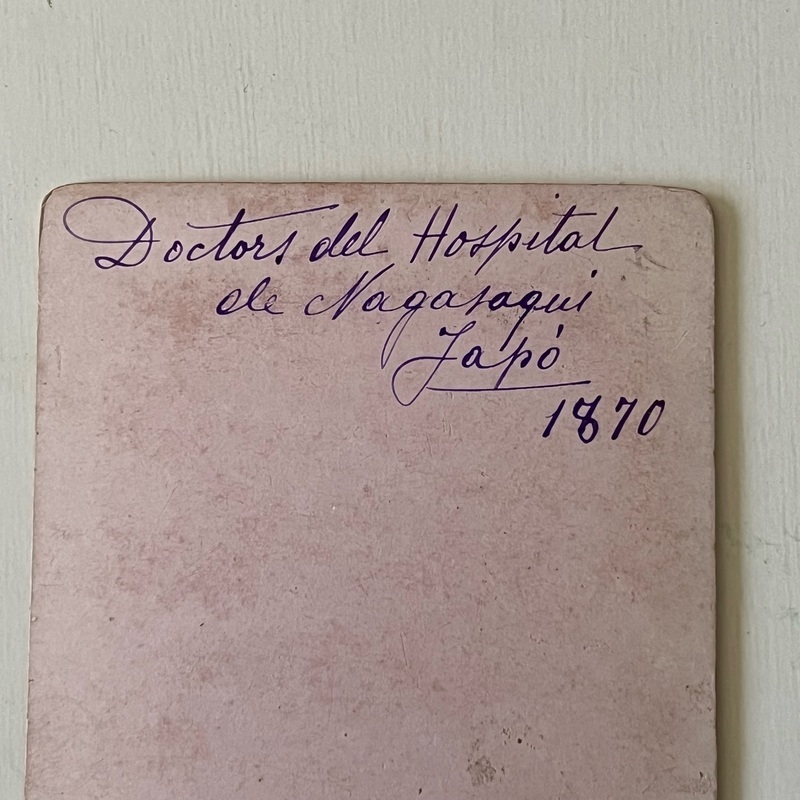 Doctors del Hospital
de Nagasaqui
Japó
1870